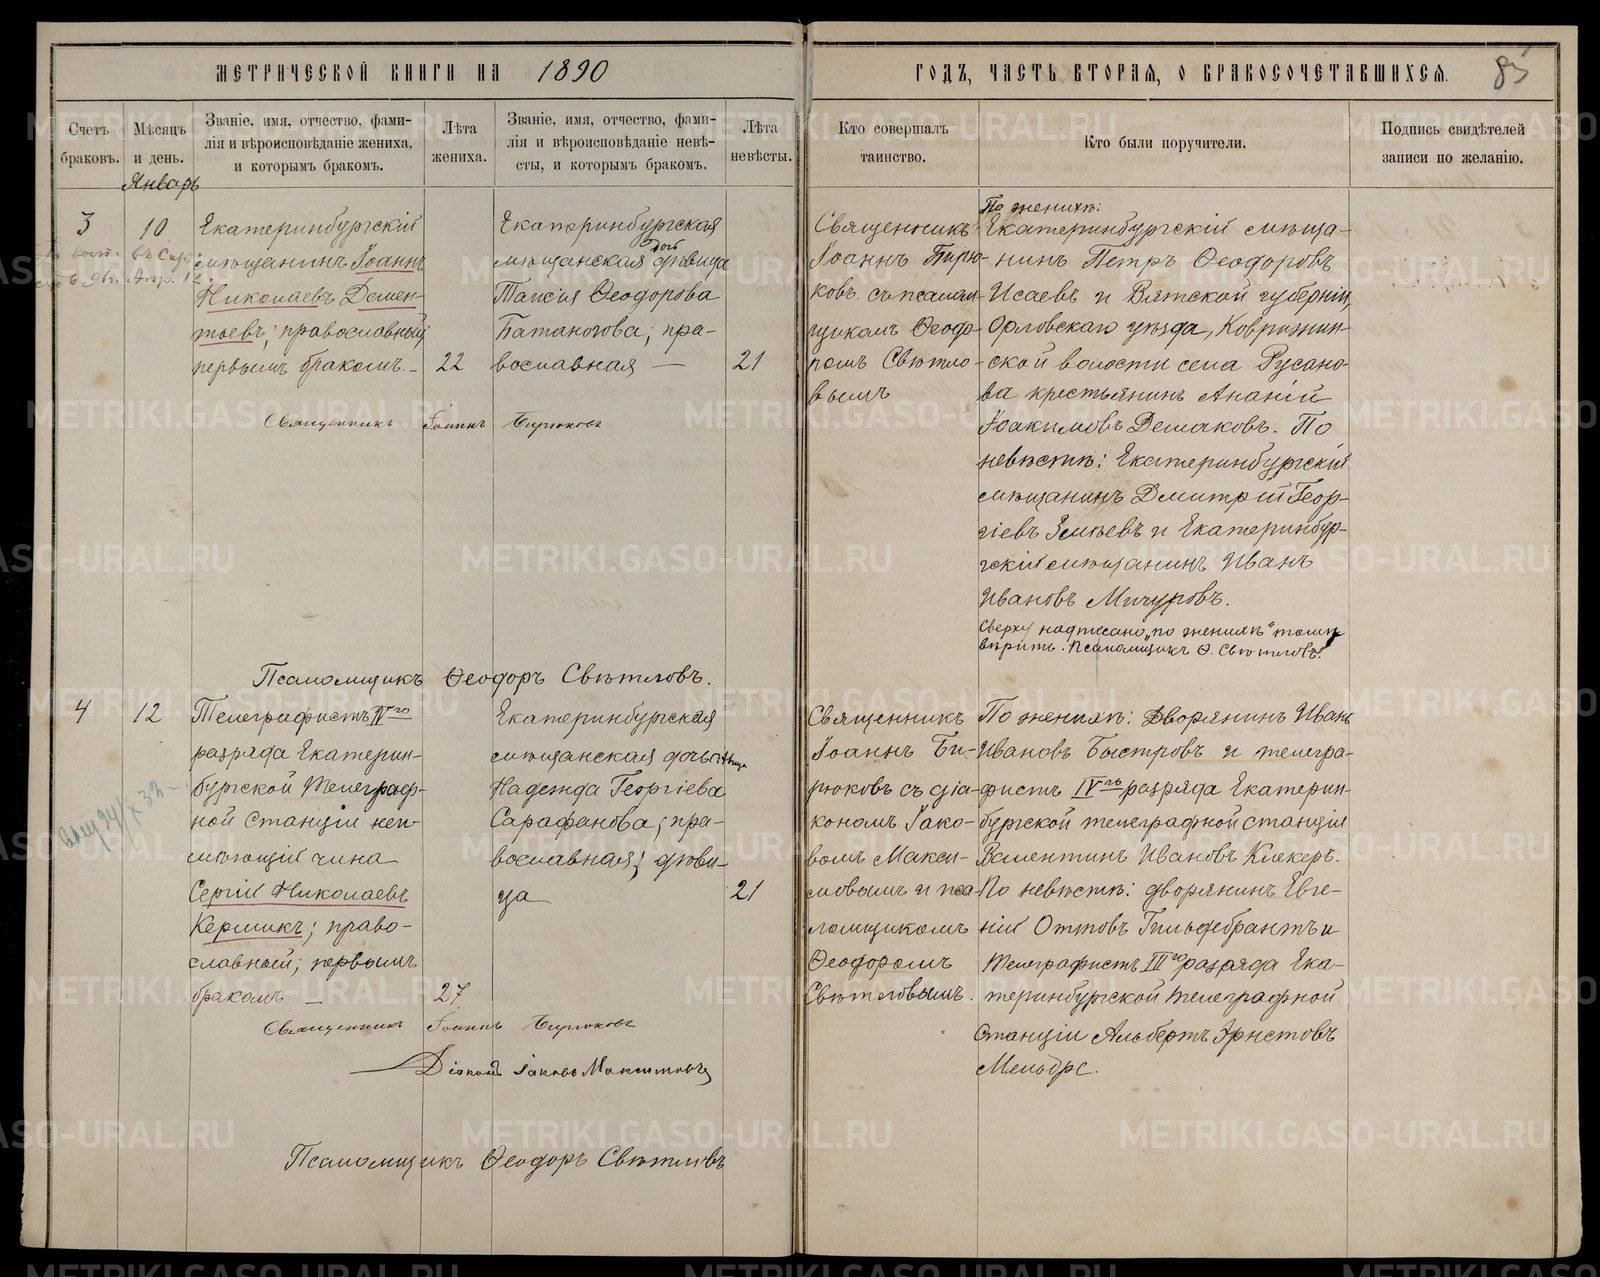 МЕТРИЧЕСКОЙ КНИГИ НА 1890
ГОДЪ, ЧАСТЬ ВТОРАЯ, О БРАКОСОЧЕТАВШИХСЯ.
85
Счетъ
браковъ.
Мѣсяцъ
и день.
Январь
Званіе, имя, отчество, фами-
лія и вѣроисповѣданіе жениха,
и которымъ бракомъ.
Лѣта
жениха.
Званіе, имя, отчество, фами-
лія и вѣроисповѣданіе невѣ-
сты, и которымъ бракомъ.
Лѣта
невѣсты.
Кто совершалъ
таинство.
Кто были поручители.
Подпись свидѣтелей
записи по желанію.
3
10
Екатеринбургскій
мѣщанинъ Іоаннъ
Николаевъ Демен-
тьевъ; православный,
первымъ бракомъ.
22
Екатеринбургская
мѣщанская дѣвица
Таисія Ѳеодорова
Батаногова; пра-
вославная —
21
Священникъ
Іоаннъ Бирю-
ковъ съ псалом-
щикомъ Ѳеодо-
ромъ Свѣтло-
вымъ
По женихѣ:
Екатеринбургскій мѣща-
нинъ Петръ Ѳеодоровъ
Исаевъ и Вятской губерніи,
Орловскаго уѣзда, Коврижин-
ской волости села Русано-
ва крестьянинъ Ананій
Іоакимовъ Демаковъ. По
невѣстѣ: Екатеринбургскій
мѣщанинъ Дмитрій Геор-
гіевъ Змѣевъ и Екатеринбур-
гскій мѣщанинъ Иванъ
Ивановъ Мичуровъ.
Сверху надписано „по женихѣ"
вѣрить. Псаломщикъ Ѳ. Свѣтловъ.
Священникъ Іоаннъ Бирюковъ
Псаломщикъ Ѳеодоръ Свѣтловъ.
4
12
Телеграфистъ IVго
разряда Екатерин-
бургской Телеграф-
ной Станціи неи-
мѣющій чина
Сергій Николаевъ
Керликъ; право-
славной; первымъ
бракомъ —
27
Екатеринбургская
мѣщанская дочь
Надежда Георгіева
Сарафанова; пра-
вославная; дѣви-
ца
21
Священникъ
Іоаннъ Би-
рюковъ съ діа-
кономъ Іако-
вомъ Макси-
мовымъ и пса-
ломщикомъ
Ѳеодоромъ
Свѣтловымъ.
По женихѣ: Дворянинъ Иванъ
Ивановъ Быстровъ и телегра-
фистъ IVго разряда Екатерин-
бургской телеграфной станціи
Валентинъ Ивановъ Клекеръ.
По невѣстѣ: дворянинъ Евге-
ній Оттовъ Гильдебрантъ и
Телеграфистъ IIIго разряда Ека-
теринбургской Телеграфной
Станціи Альбертъ Эрнстовъ
Священникъ Іоаннъ Бирюковъ
Діаконъ Іаковъ Максимовъ
Псаломщикъ Ѳеодоръ Свѣтловъ
METRIKI.GASO-URAL.RU